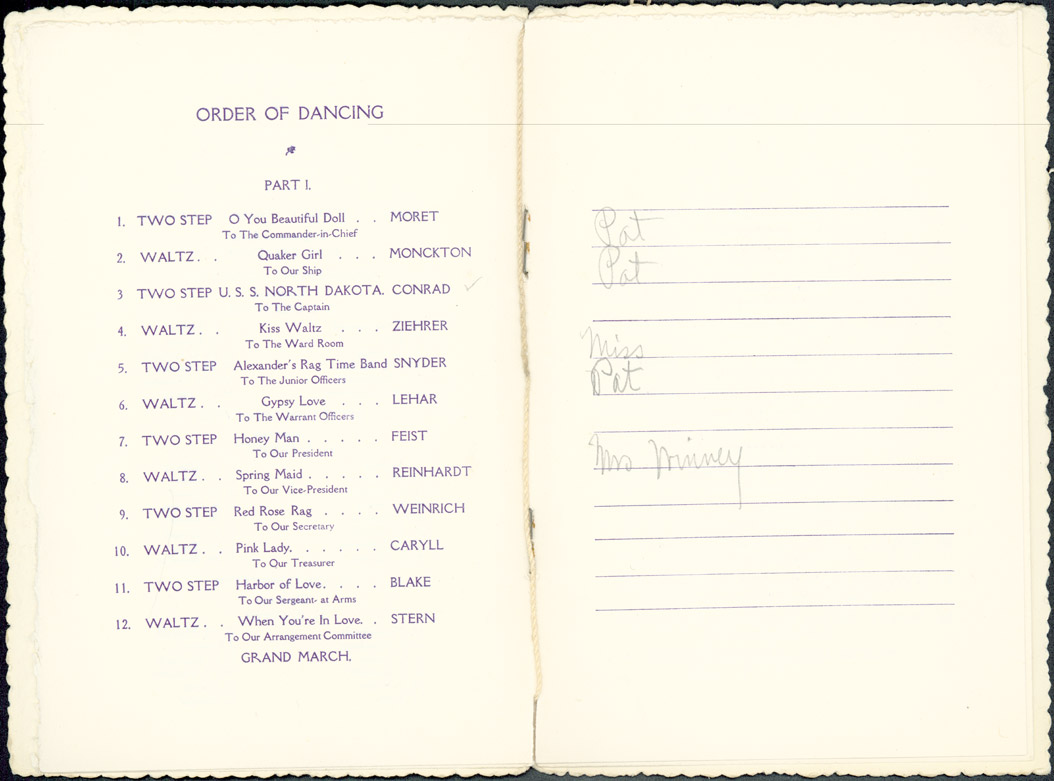 ORDER OF DANCING
PART I.
1. TWO STEP O You Beautiful Doll . . MORET
To The Commander-in-Chief
2. WALTZ . . Quaker Girl . . . MONCKTON
To Our Ship
3 TWO STEP U. S. S. NORTH DAKOTA. CONRAD
To The Captain
4. WALTZ . . Kiss Waltz . . . ZIEHRER
To The Ward Room
5. TWO STEP Alexander's Rag Time Band SNYDER
To The Junior Officers
6. WALTZ . . Gypsy Love . . . LEHAR
To The Warrant Officers
7. TWO STEP Honey Man . . . . . FEIST
To Our President
8. WALTZ . . Spring Maid . . . . . REINHARDT
To Our Vice-President
9. TWO STEP Red Rose Rag . . . . WEINRICH
To Our Secretary
10. WALTZ . . Pink Lady. . . . . . CARYLL
To Our Treasurer
11. TWO STEP Harbor of Love. . . . BLAKE
To Our Sergeant- at Arms
12. WALTZ . . When You're In Love. . STERN
To Our Arrangement Committee
GRAND MARCH.
Pat
Pat
Miss
Pat
Mrs